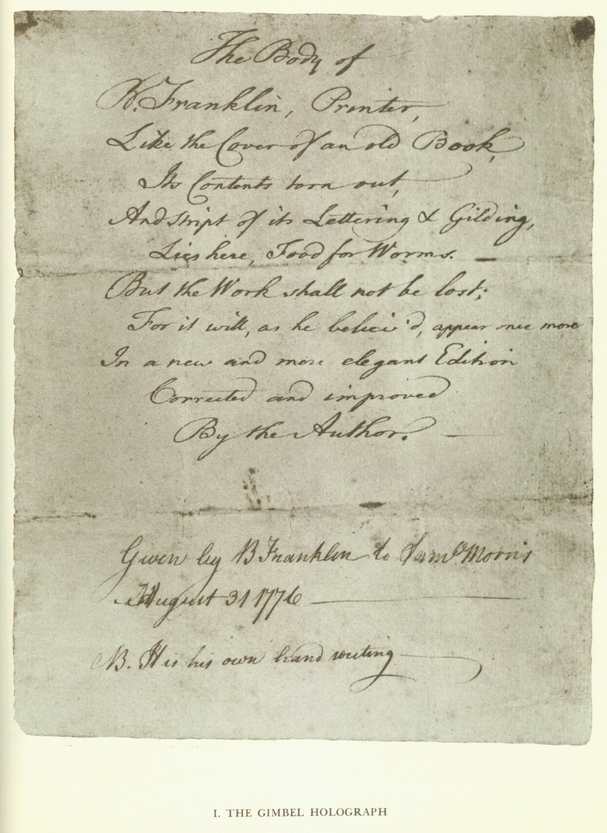 The Body of
B. Franklin, Printer,
Like the Cover of an old Book,
Its Contents torn out,
And stript of its Lettering & Gilding,
Lies here, Food for Worms. —
But the Work shall not be lost;
For it will, as he believ'd, appear once more
In a new and more elegant Edition
Corrected and improved
By the Author. —
Given by B Franklin to Saml Morris
August 31 1776 —
NB. It is his own hand writing
I. THE GIMBEL HOLOGRAPH